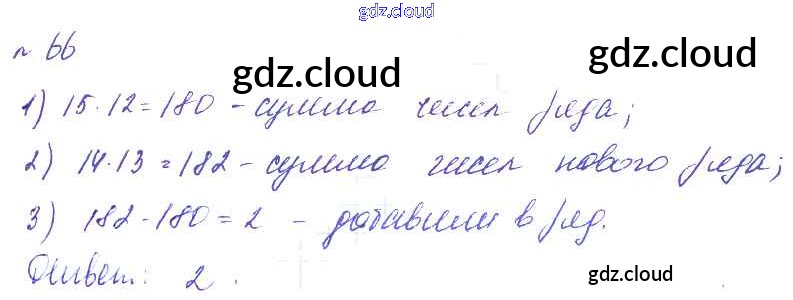 gdz.cloud
№ 66
gdz.cloud
gdz.cloud
1) 15·12=180 - сумма чисел ряда;
gdz.cloud
2) 14·13=182 - сумма чисел нового ряда;
3) 182-180=2 - добавили в ряд.
Ответ: 2.
gdz.cloud
gdz.cloud